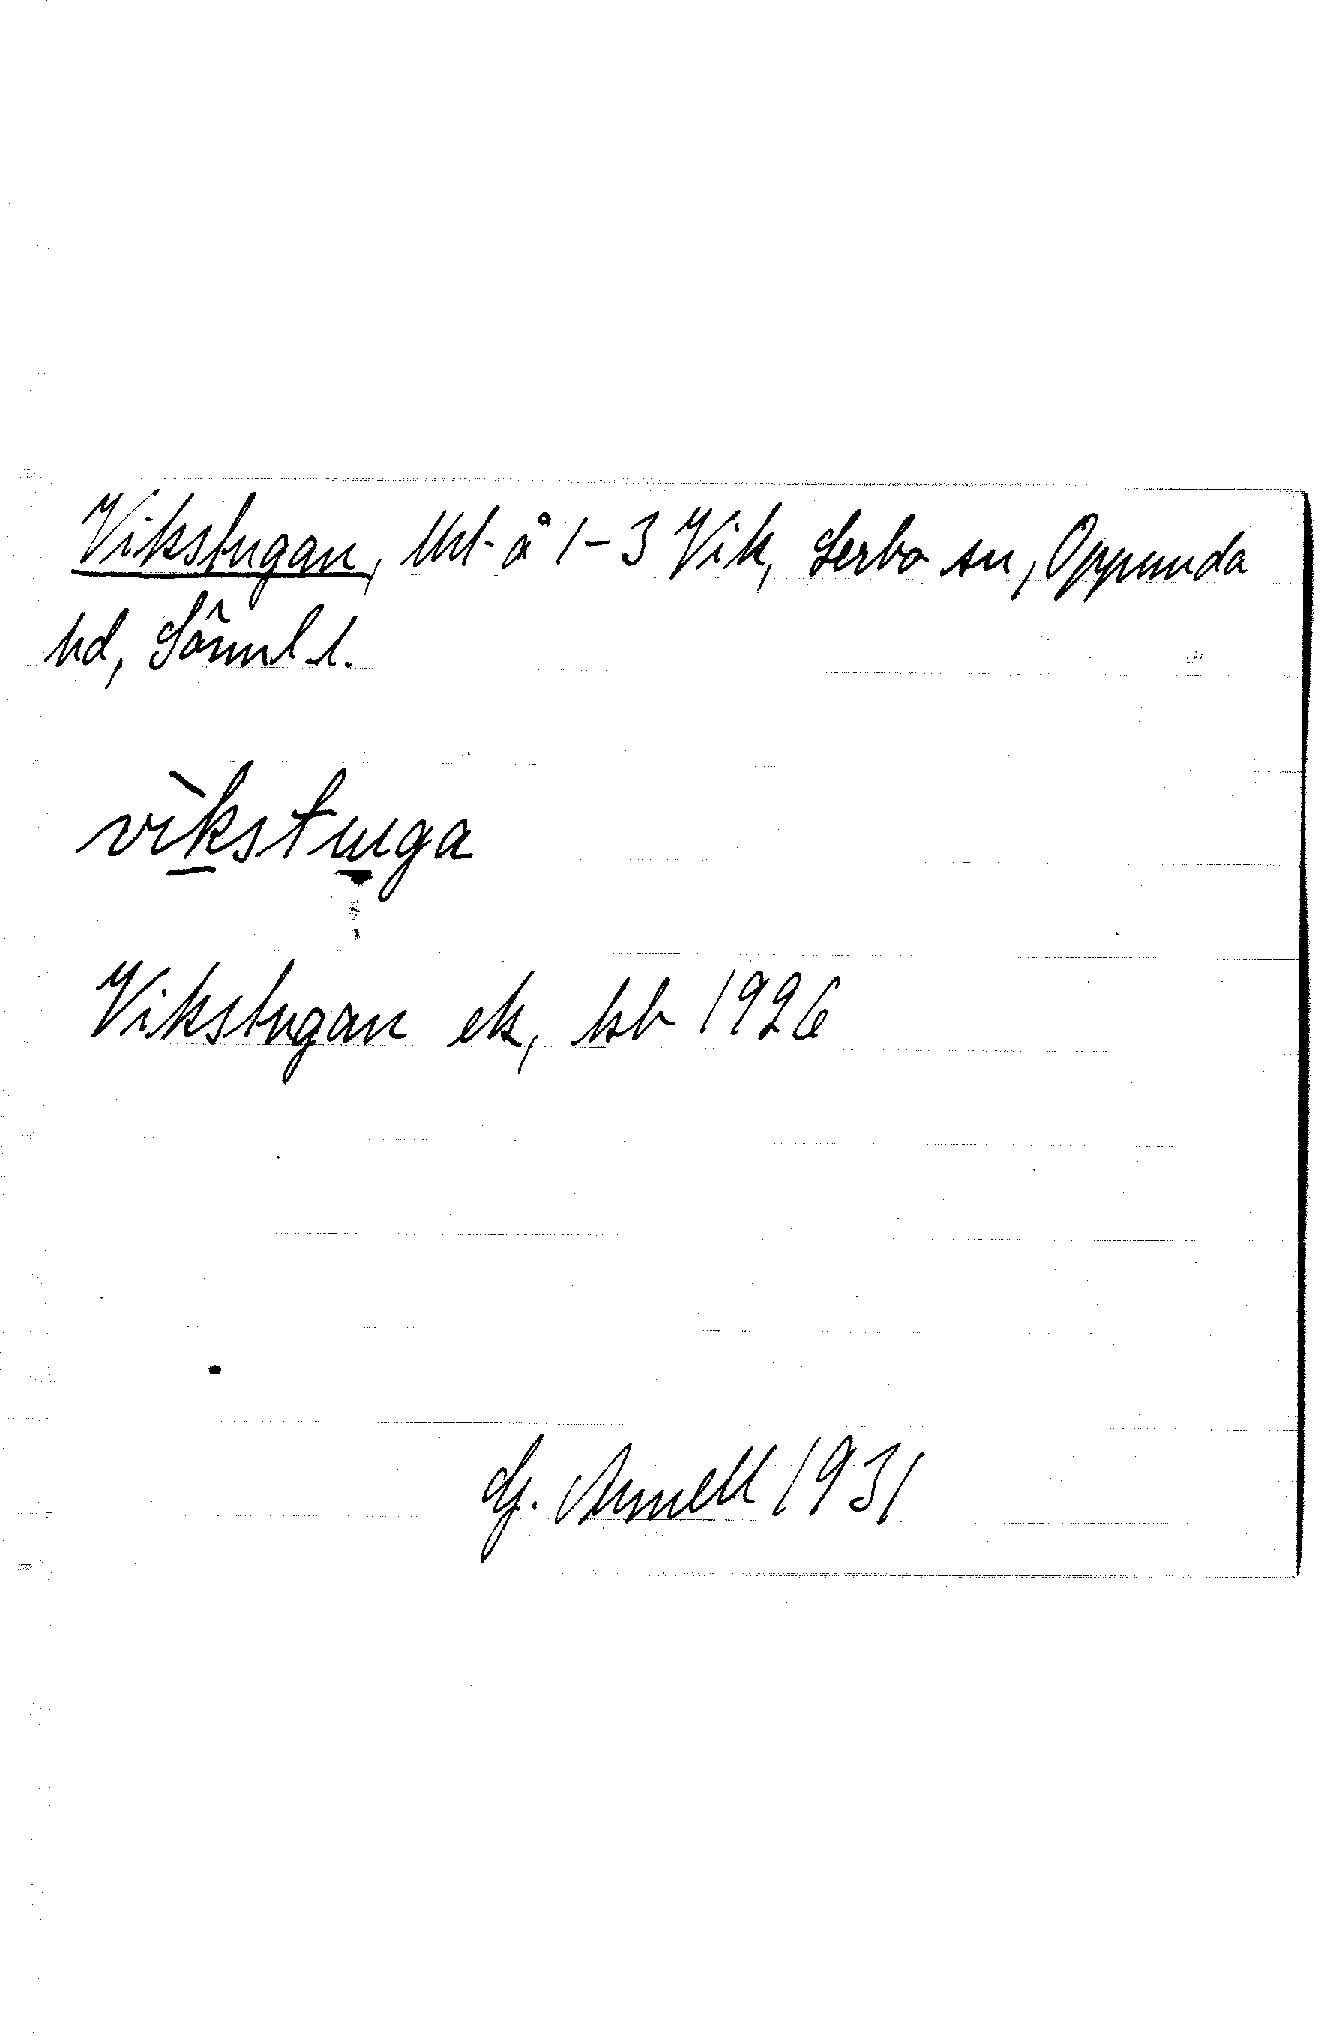 Vikstugan, tht å 1-3 Vik, Lerbo sn, Oppunda
hd, Sörml. l.
vìkstuga
Vikstugan ek, hsb 1926
G. Arnell 1931